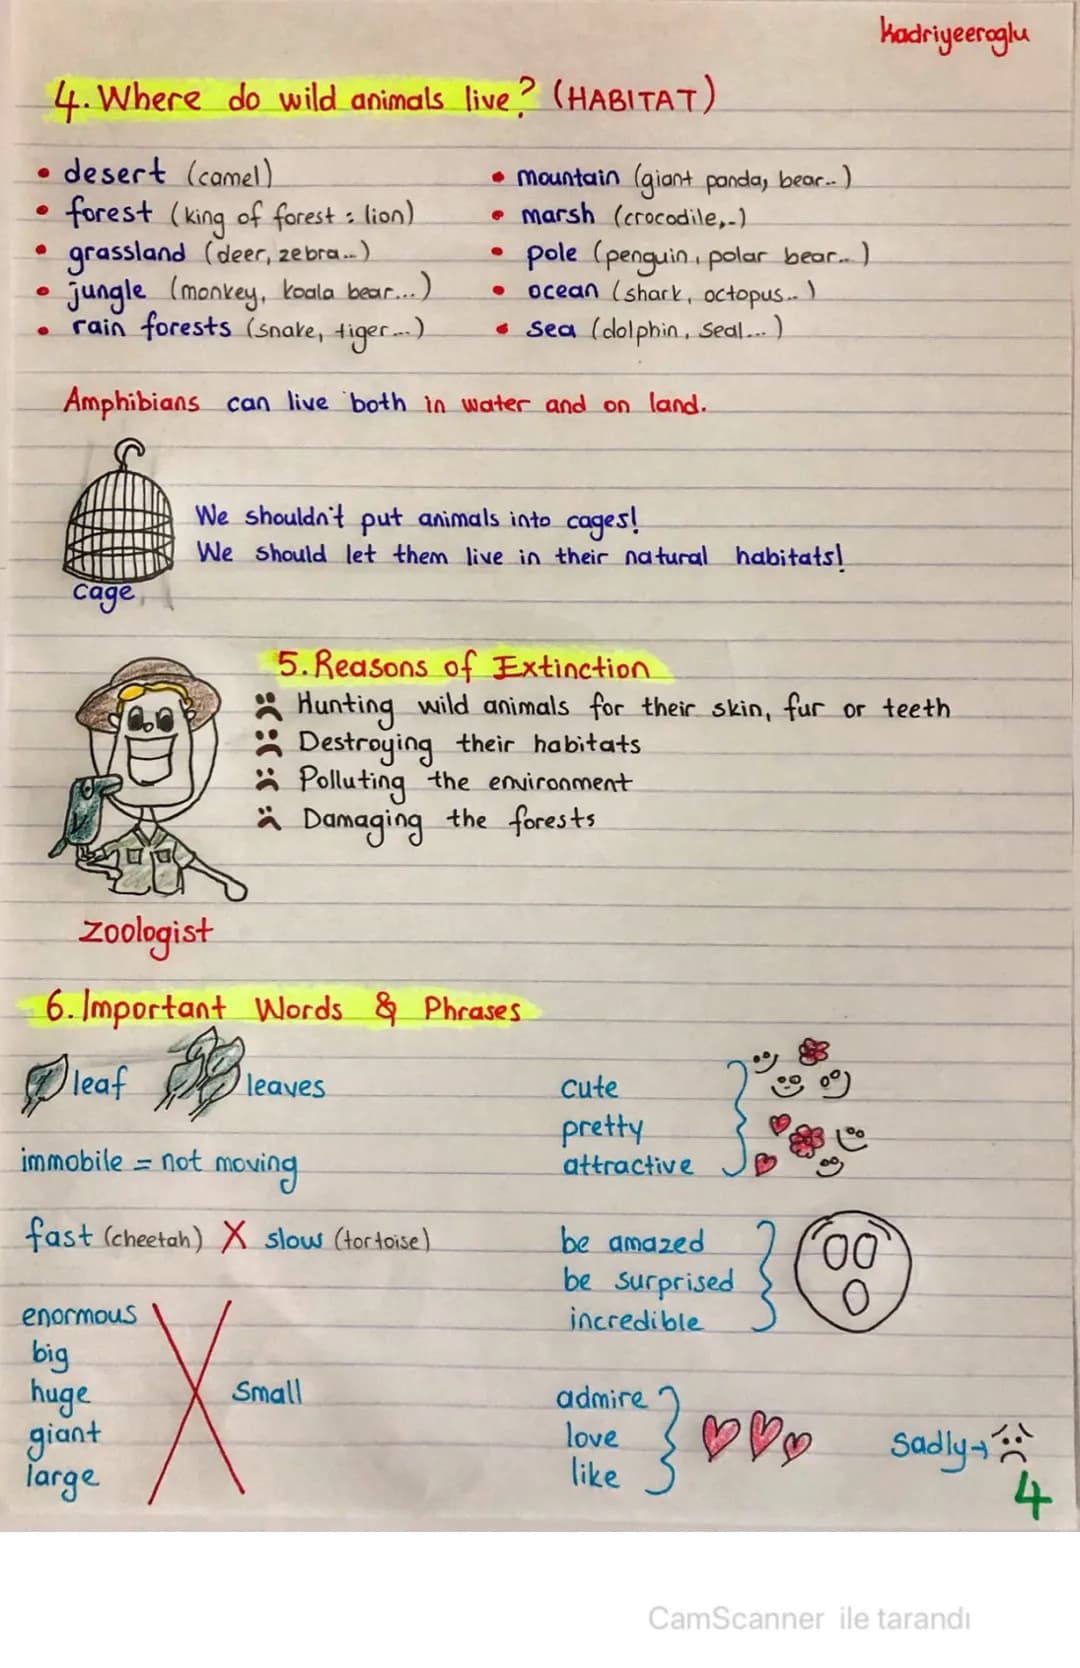 kadriyeeroglu
4. Where do wild animals live? (HABITAT)
• desert (camel)
• forest (king of forest : lion)
• grassland (deer, zebra...)
• jungle (monkey, koala bear...)
• rain forests (snake, tiger...)
• mountain (giant panda, bear..)
• marsh (crocodile,..)
• pole (penguin, polar bear..)
• ocean (shark, octopus..)
• sea (dolphin, seal...)
Amphibians can live both in water and on land.
We shouldn't put animals into cages!
We should let them live in their natural habitats!
cage
5. Reasons of Extinction
Hunting wild animals for their skin, fur or teeth
Destroying their habitats
Polluting the environment
Damaging the forests
zoologist
6. Important Words & Phrases
leaf leaves
immobile = not moving
fast (cheetah) X slow (tortoise)
enormous
big
huge
giant
large
small
cute
pretty
attractive
be amazed
be surprised
incredible
admire
love
like
Sadly→
4
CamScanner ile tarandı